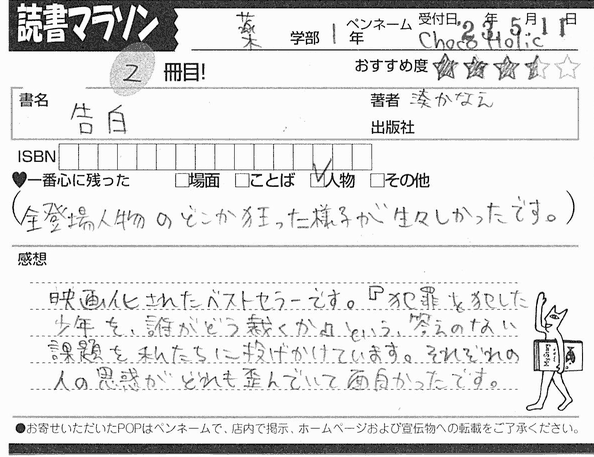 読書マラソン
薬 学部 1年 ペンネーム Choco Holic 受付日 23年5月11日
2冊目! おすすめ度
書名 告白 著者 湊かなえ
出版社
ISBN
♥一番心に残った □場面 □ことば □人物 □その他
(全登場人物のどこか狂った様子が生々しかったです。)
感想
映画化されたベストセラーです。『犯罪を犯した
少年を、誰がどう裁くか』という、答えのない
課題を私たちに投げかけています。それぞれの
人の思惑がどれも歪んでいて面白かったです。
●お寄せいただいたPOPはペンネームで、店内で掲示、ホームページおよび宣伝物への転載をご了承ください。